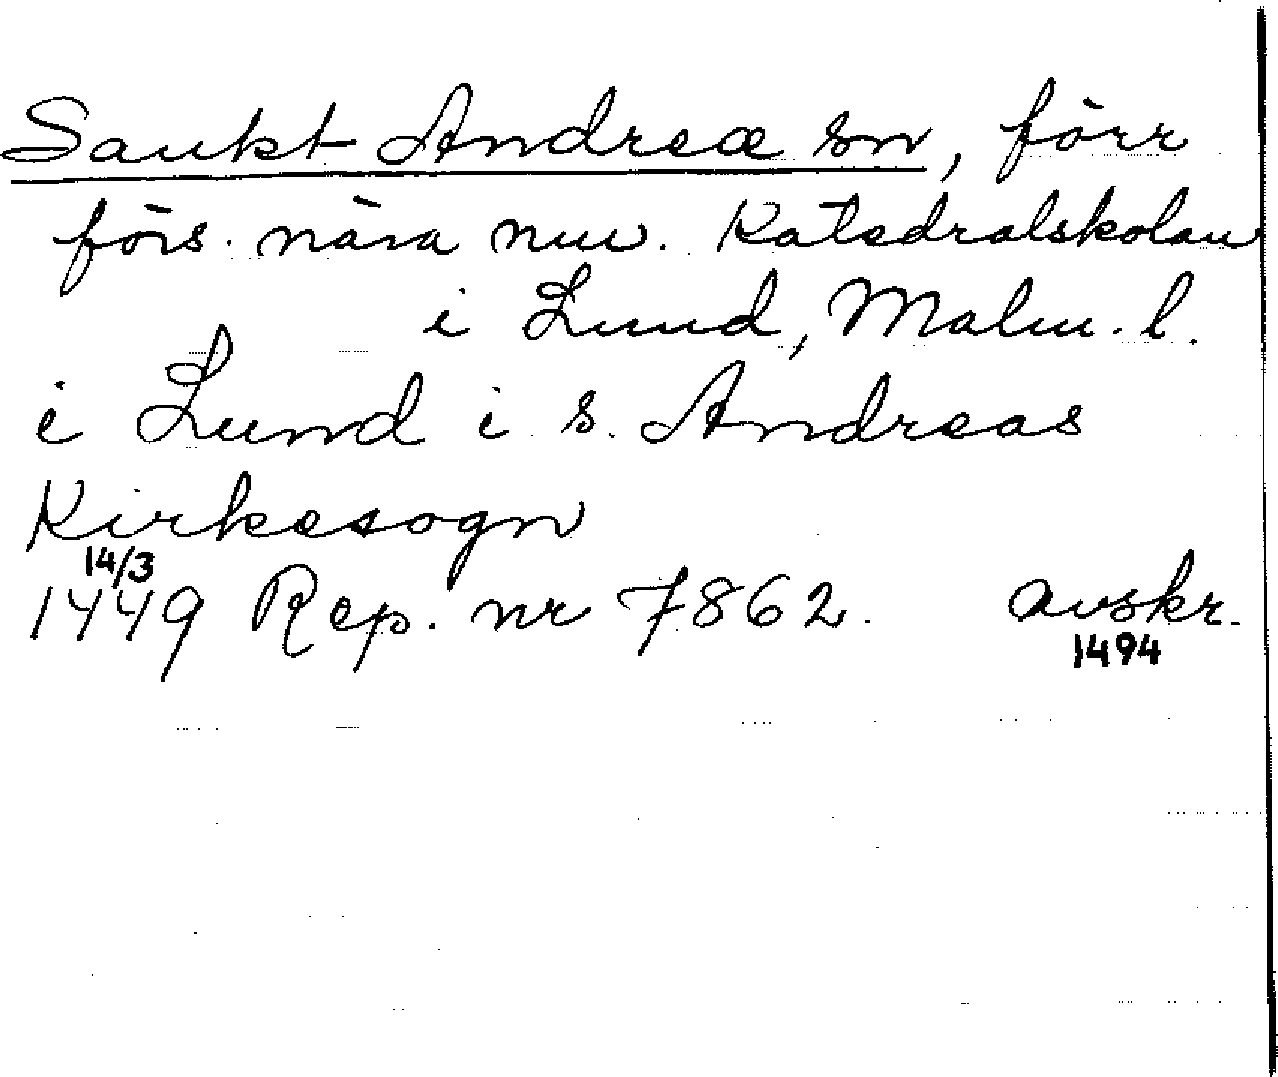 Sankt Andreæ sn, förr
förs. nära nuv. Katedralskolan
i Lund, Malm. l.
i Lund i s. Andreas
Kirkesogn
14/3
1449 Rep. nr 7862. avskr.
1494